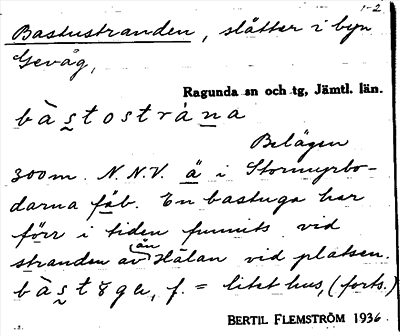 1-2
Bastustranden, slåtter i byn
Gevåg,
Ragunda sn och tg, Jämtl. län.
bàstostràna
Belägen
300 m. N.N.V. ä i Stormyrbo-
darna fäb. En bastuga har
förr i tiden funnits vid
stranden av ån Hålan vid platsen.
bàstȣga, f. = litet hus, (forts.)
BERTIL FLEMSTRÖM 1936